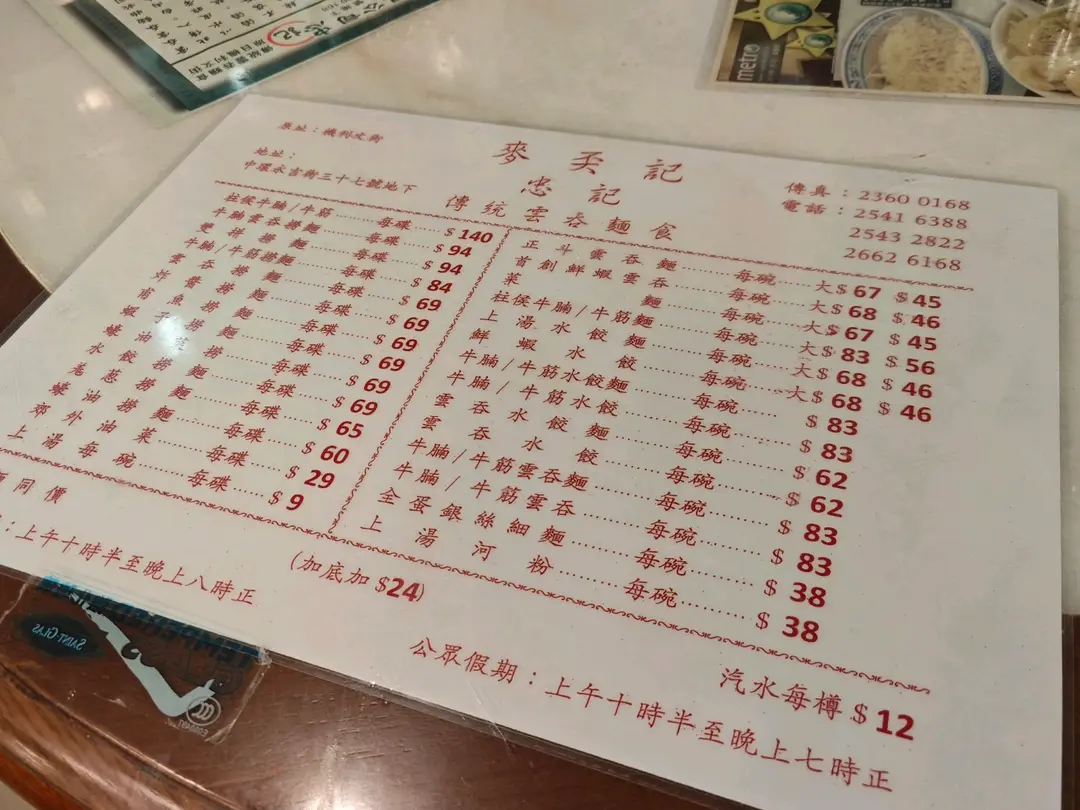 忠記
metro
原址：機利文街
地址：
中環永吉街三十七號地下
麥奀記
忠記
傳統雲吞麵食
傳真：2360 0168
電話：2541 6388
2543 2822
2662 6168
柱侯牛腩/牛筋……每碟……$140
牛腩雲吞撈麵……每碟……$94
雙拼撈麵……每碟……$94
牛腩/牛筋撈麵……每碟……$84
雲吞撈麵……每碟……$69
炸醬撈麵……每碟……$69
魚撈麵……每碟……$69
蝦子撈麵……每碟……$69
蠔油菜撈……每碟……$69
水餃撈麵……每碟……$69
薑葱撈麵……每碟……$65
蠔油撈麵……每碟……$60
郊外油菜……每碟……$29
上湯每碗……每碟……$9
正斗雲吞麵……每碗……大$67 $45
首創鮮蝦雲吞……每碗……大$68 $46
菜麵……每碗……大$67 $45
柱侯牛腩/牛筋麵……每碗……大$83 $56
上湯水餃麵……每碗……大$68 $46
鮮蝦水餃……每碗……大$68 $46
牛腩/牛筋水餃麵……每碗……$83
牛腩/牛筋水餃……每碗……$83
雲吞水餃麵……每碗……$62
雲吞水餃……每碗……$62
牛腩/牛筋雲吞麵……每碗……$83
牛腩/牛筋雲吞……每碗……$83
全蛋銀絲細麵……每碗……$38
上湯河粉……每碗……$38
同價
(加底加$24)
汽水每樽$12
：上午十時半至晚上八時正
公眾假期：上午十時半至晚上七時正
SAINT-GLAS